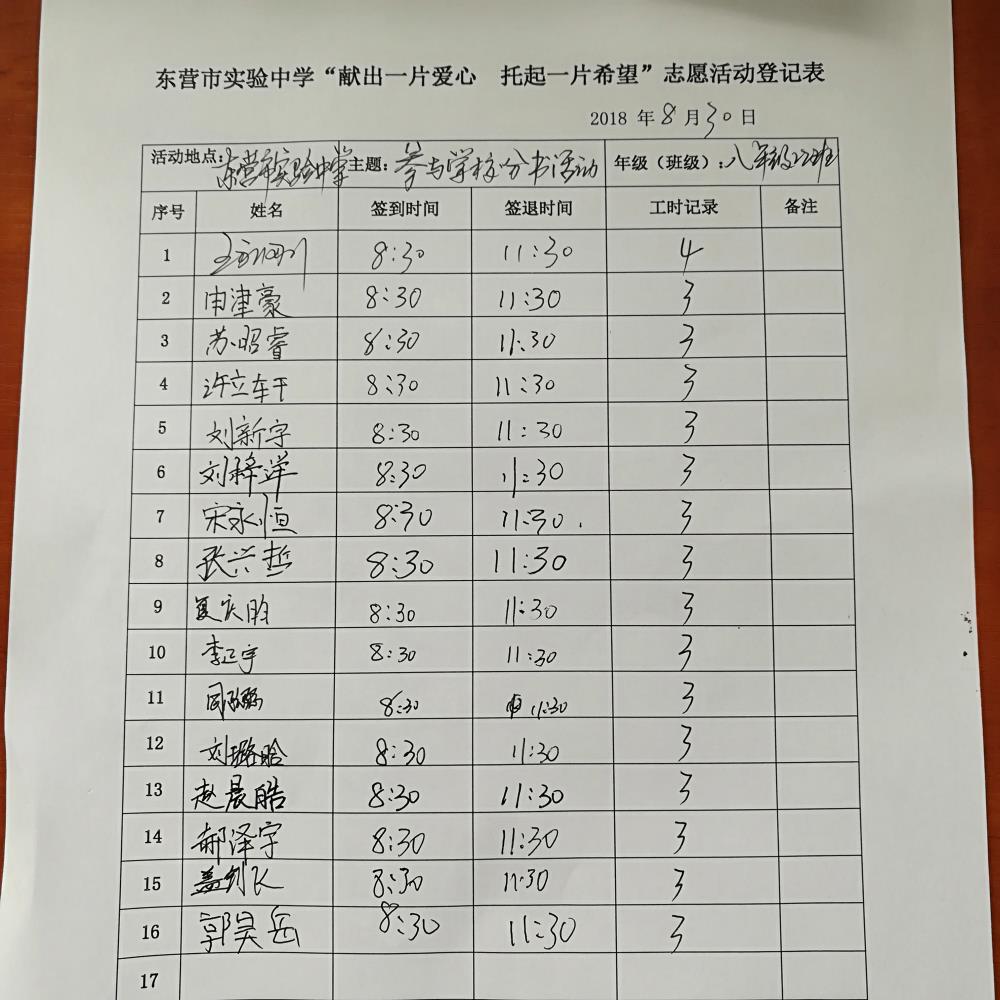 东营市实验中学“献出一片爱心 托起一片希望”志愿活动登记表
2018 年 8 月 30 日
活动地点:东营市实验中学 主题:参与学校分书活动 年级(班级):八年级22班
序号 姓名 签到时间 签退时间 工时记录 备注
1 8:30 11:30 4
2 申津豪 8:30 11:30 3
3 苏昭睿 8:30 11:30 3
4 许立车干 8:30 11:30 3
5 刘新宇 8:30 11:30 3
6 刘释洋 8:30 11:30 3
7 宋永恒 8:30 11:30. 3
8 张兴哲 8:30 11:30 3
9 夏庆昀 8:30 11:30 3
10 李正宇 8:30 11:30 3
11 8:30 11:30 3
12 刘璐晗 8:30 11:30 3
13 赵晨皓 8:30 11:30 3
14 郝泽宇 8:30 11:30 3
15 盖 8:30 11:30 3
16 郭昊岳 8:30 11:30 3
17